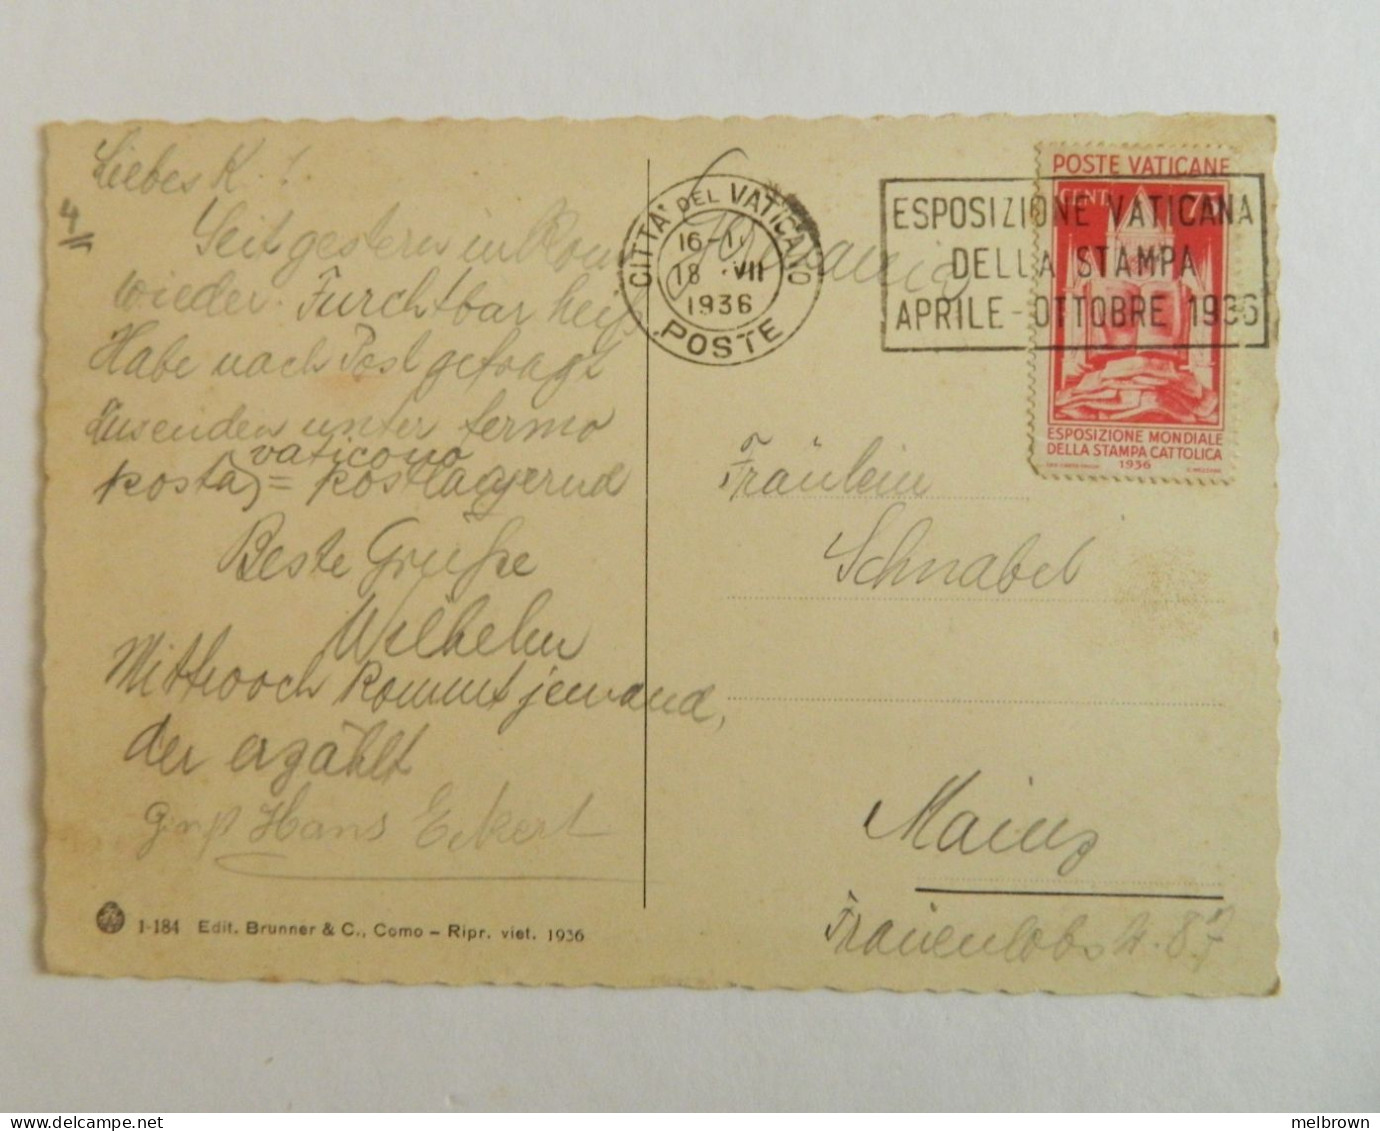 Liebes K.!
4
Seit gestern in Rom
wieder. Furchtbar heiß
Habe nach Post gefragt
Zusenden unter fermo
vaticano
posta = postlagernd
Beste Grüße
Wilhelm
Mittwoch kommt jemand,
der erzählt
Gruß Hans Eckert
1-184 Edit. Brunner & C., Como – Ripr. viet. 1936
CITTA' DEL VATICANO
18 VII
1936
POSTE
Germania
ESPOSIZIONE VATICANA
DELLA STAMPA
APRILE - OTTOBRE 1936
POSTE VATICANE
CENT. 75
ESPOSIZIONE MONDIALE
DELLA STAMPA CATTOLICA
1936
Fräulein
Schnabel
Mainz
Frauenlobstr. 87
melbrown